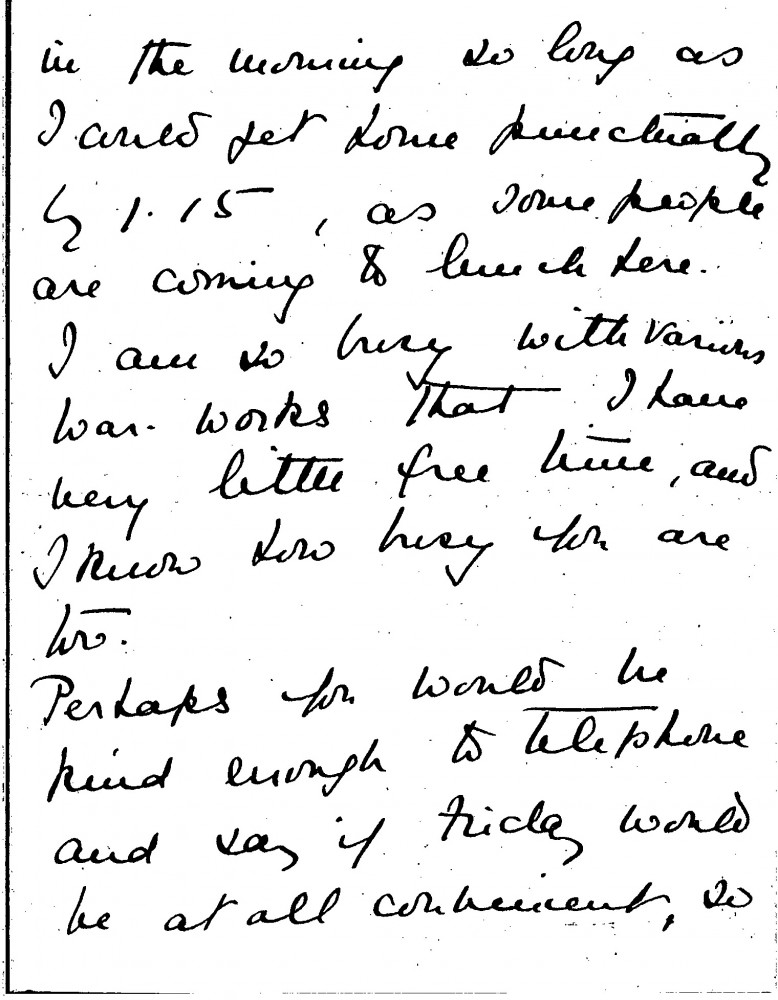 in the morning so long as
I could get home punctually
by 1.15, as some people
are coming to lunch here.
I am so busy with various
war-works that I have
very little free time, and
I know how busy you are
too.
Perhaps you would be
kind enough to telephone
and say if Friday would
be at all convenient, so